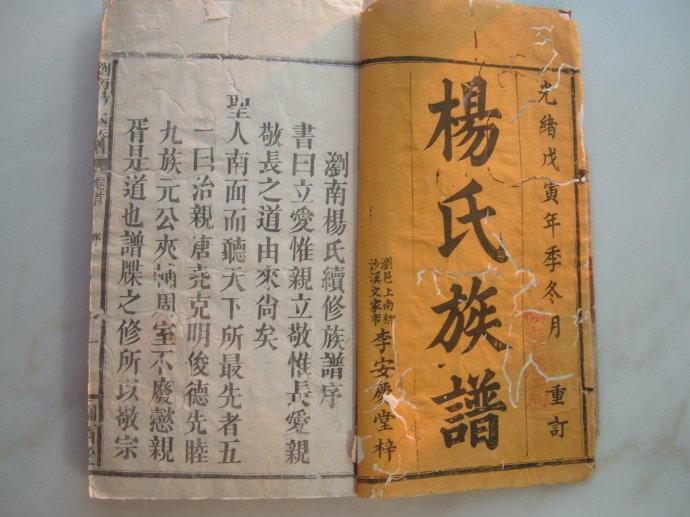 光緒戊寅年季冬月 重訂
楊氏族譜
瀏邑上南鄉
沙溪文家市
李安廖堂梓
瀏南楊氏續修族譜序
書曰立愛惟親立敬惟長愛親
敬長之道由來尚矣
聖人南面而聽天下所最先者五
一曰治親唐堯克明俊德先睦
九族元公夾輔周室不廢懿親
胥是道也譜牒之修所以敬宗
瀏南楊氏族譜 卷首 序